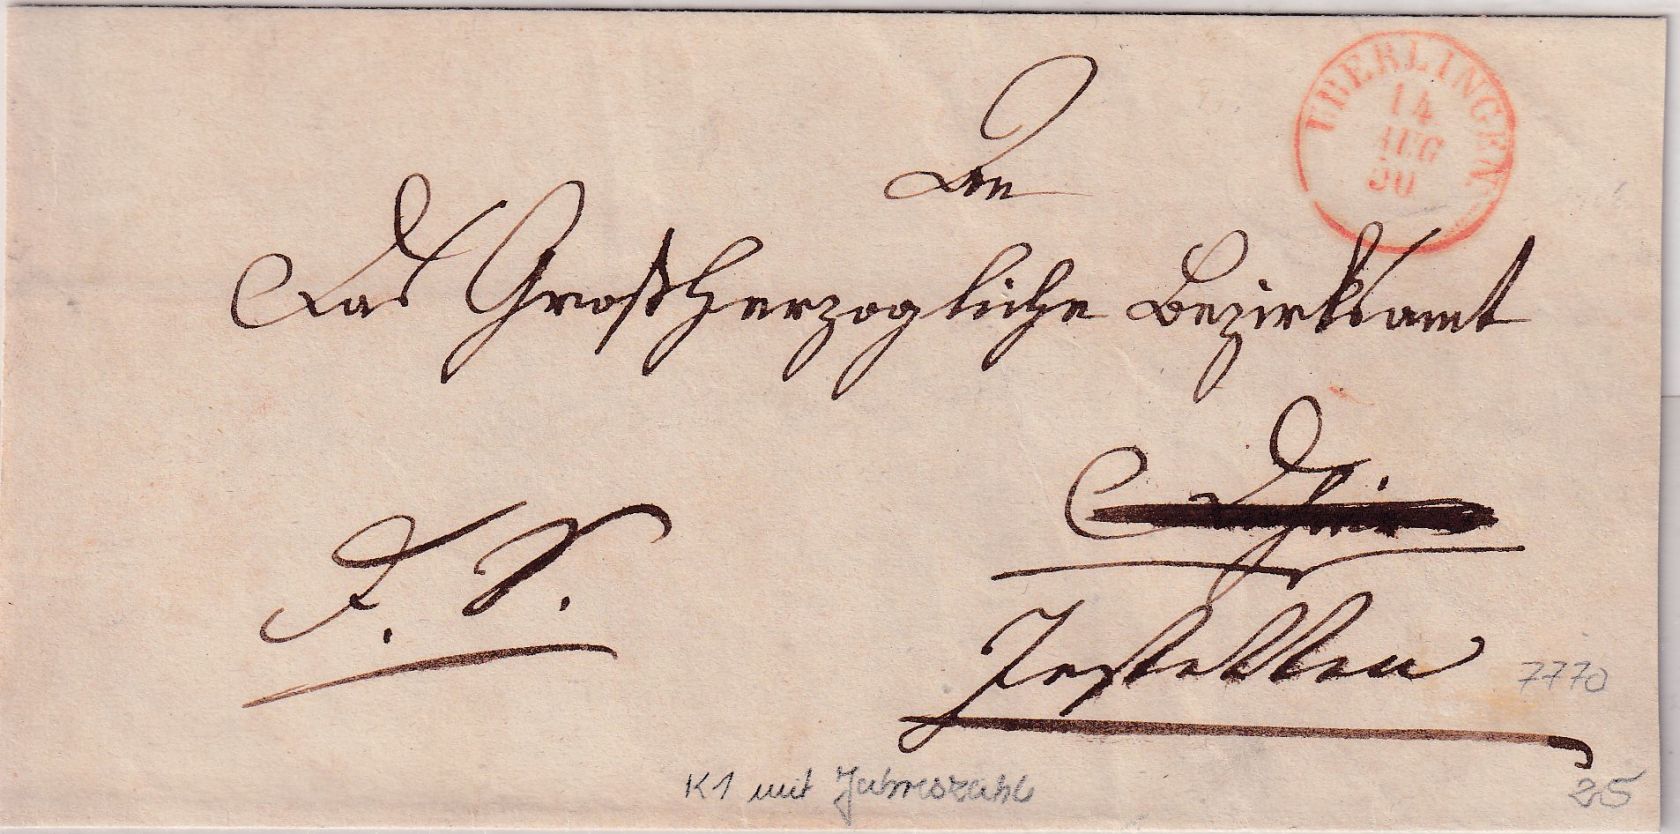 UBERLINGEN
14
AUG
50
An
Das Großherzogliche Bezirksamt
Jestetten
7770
K1 mit Jahreszahl
25